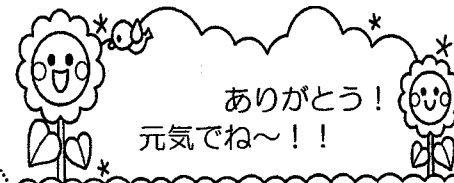 ありがとう！
元気でね～！！